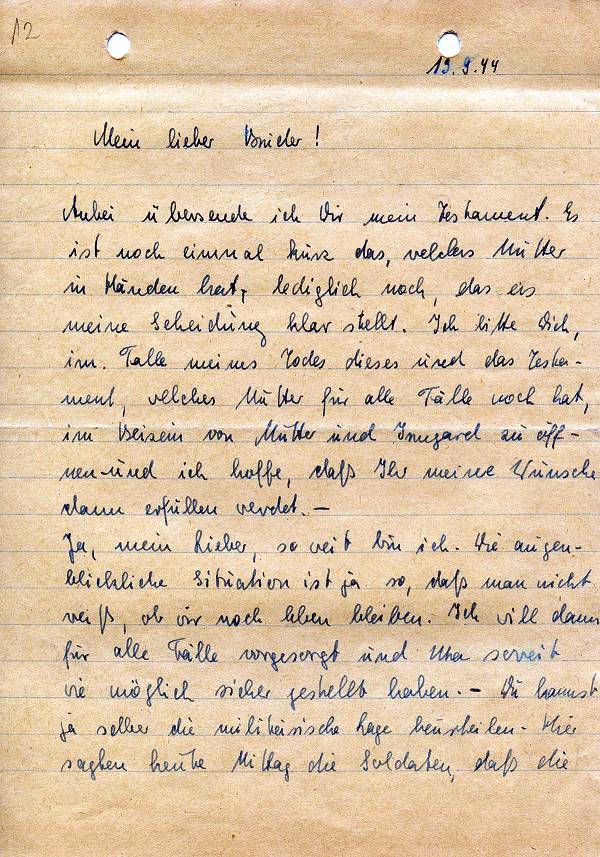 12
19.9.44
Mein lieber Bruder!
Anbei übersende ich Dir mein Testament. Es
ist noch einmal kurz das, welches Mutter
in Händen hat, lediglich noch, das es
meine Scheidung klar stellt. Ich bitte Dich,
im Falle meines Todes dieses und das Testa-
ment, welches Mutter für alle Fälle noch hat,
im Beisein von Mutter und Irmgard zu öff-
nen und ich hoffe, daß Ihr meine Wünsche
dann erfüllen werdet. —
Ja, mein Lieber, so weit bin ich. Die augen-
blickliche Situation ist ja so, daß man nicht
weiß, ob wir noch leben bleiben. Ich will dann
für alle Fälle vorgesorgt und Uta soweit
wie möglich sicher gestellt haben. — Du kannst
ja selber die militärische Lage beurteilen. Hier
sagten heute Mittag die Soldaten, daß die